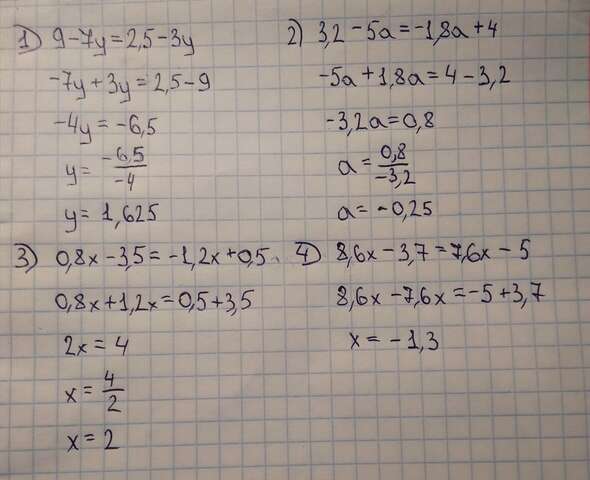 1) 9-7y=2,5-3y
-7y+3y=2,5-9
-4y=-6,5
y=\frac{-6,5}{-4}
y=1,625
2) 3,2-5a=-1,8a+4
-5a+1,8a=4-3,2
-3,2a=0,8
a=\frac{0,8}{-3,2}
a=-0,25
3) 0,8x-3,5=-1,2x+0,5
0,8x+1,2x=0,5+3,5
2x=4
x=\frac{4}{2}
x=2
4) 8,6x-3,7=7,6x-5
8,6x-7,6x=-5+3,7
x=-1,3